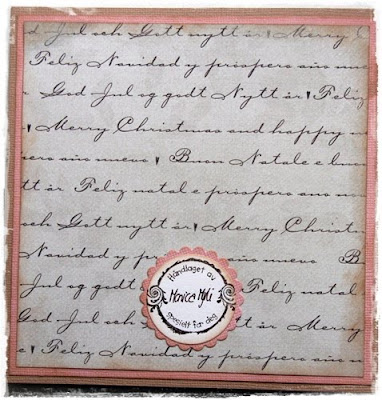 d Jul och Gott nytt år ♥ Merry C
Feliz Navidad y prospero ano nue
God Jul og godt Nytt år ♥ Feliz
♥ Merry Christmas and happy n
pero ano nuevo ♥ Buon Natale e buon
tt år Feliz natal e prospero ano
och Gott nytt år ♥ Merry Christm
Navidad y prospero ano nuevo ♥ B
Jul og godt Feliz natal
God Jul och Merry
♥ Feliz Navidad y prospero ano n
Håndlaget av
Monica
spesielt for deg